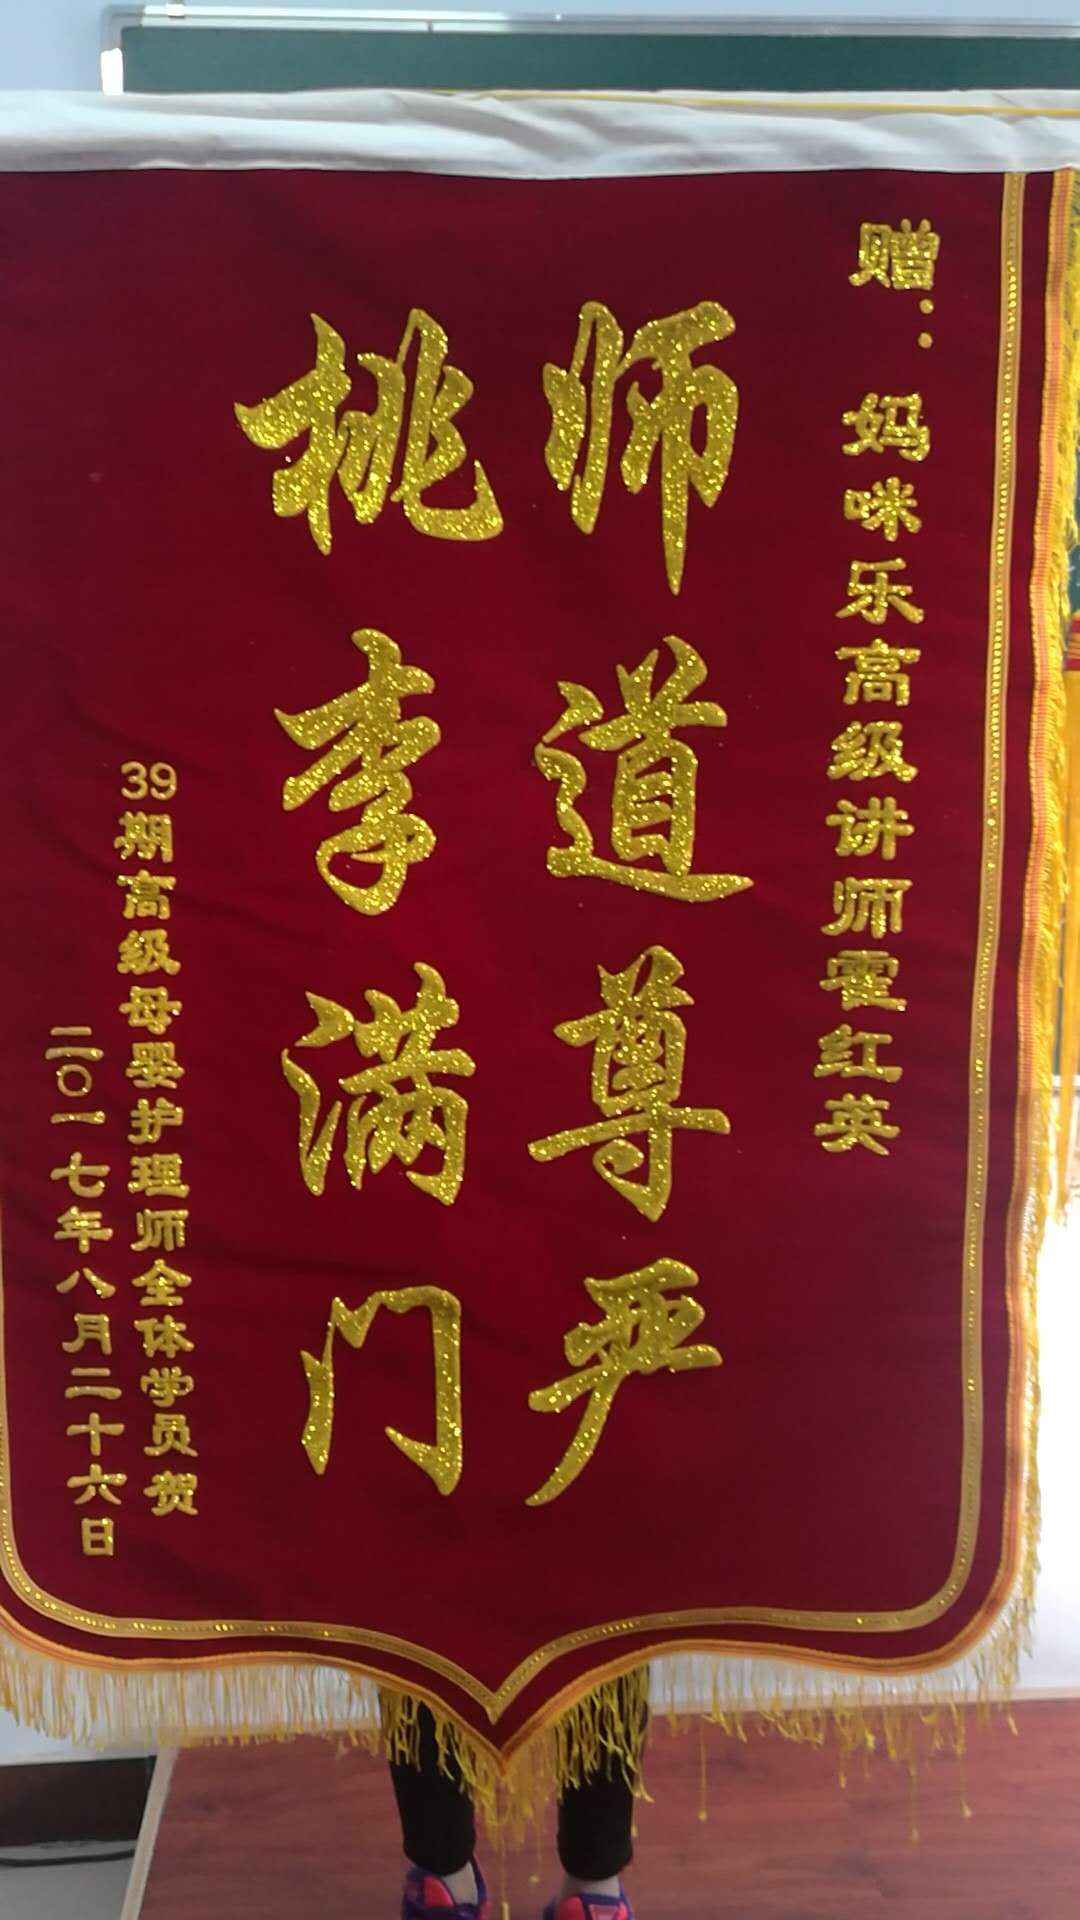 赠：妈咪乐高级讲师霍红英
师道尊严
桃李满门
39期高级母婴护理师全体学员贺
二〇一七年八月二十六日